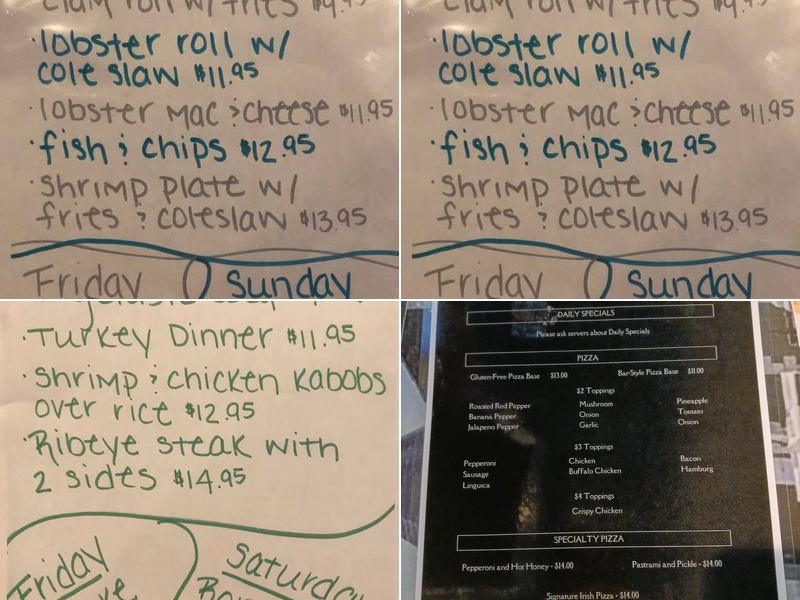 Clam roll w/ fries $9.95
·lobster roll w/
cole slaw $11.95
·lobster Mac & cheese $11.95
·fish & chips $12.95
·Shrimp plate w/
fries & coleslaw $13.95
Friday Sunday
Clam roll w/ fries $9.95
·lobster roll w/
cole slaw $11.95
·lobster Mac & cheese $11.95
·fish & chips $12.95
·Shrimp plate w/
fries & coleslaw $13.95
Friday Sunday
·Turkey Dinner $11.95
·Shrimp & chicken Kabobs
over rice $12.95
·Ribeye steak with
2 sides $14.95
Friday
Saturday
DAILY SPECIALS
Please ask servers about Daily Specials
PIZZA
Gluten-Free Pizza Base $13.00 Bar-Style Pizza Base $11.00
$2 Toppings
Roasted Red Pepper Mushroom Pineapple
Banana Pepper Onion Tomato
Jalapeno Pepper Garlic Onion
$3 Toppings
Pepperoni Chicken Bacon
Sausage Buffalo Chicken Hamburg
Linguica
$4 Toppings
Crispy Chicken
SPECIALTY PIZZA
Pepperoni and Hot Honey - $14.00 Pastrami and Pickle - $14.00
Signature Irish Pizza - $14.00